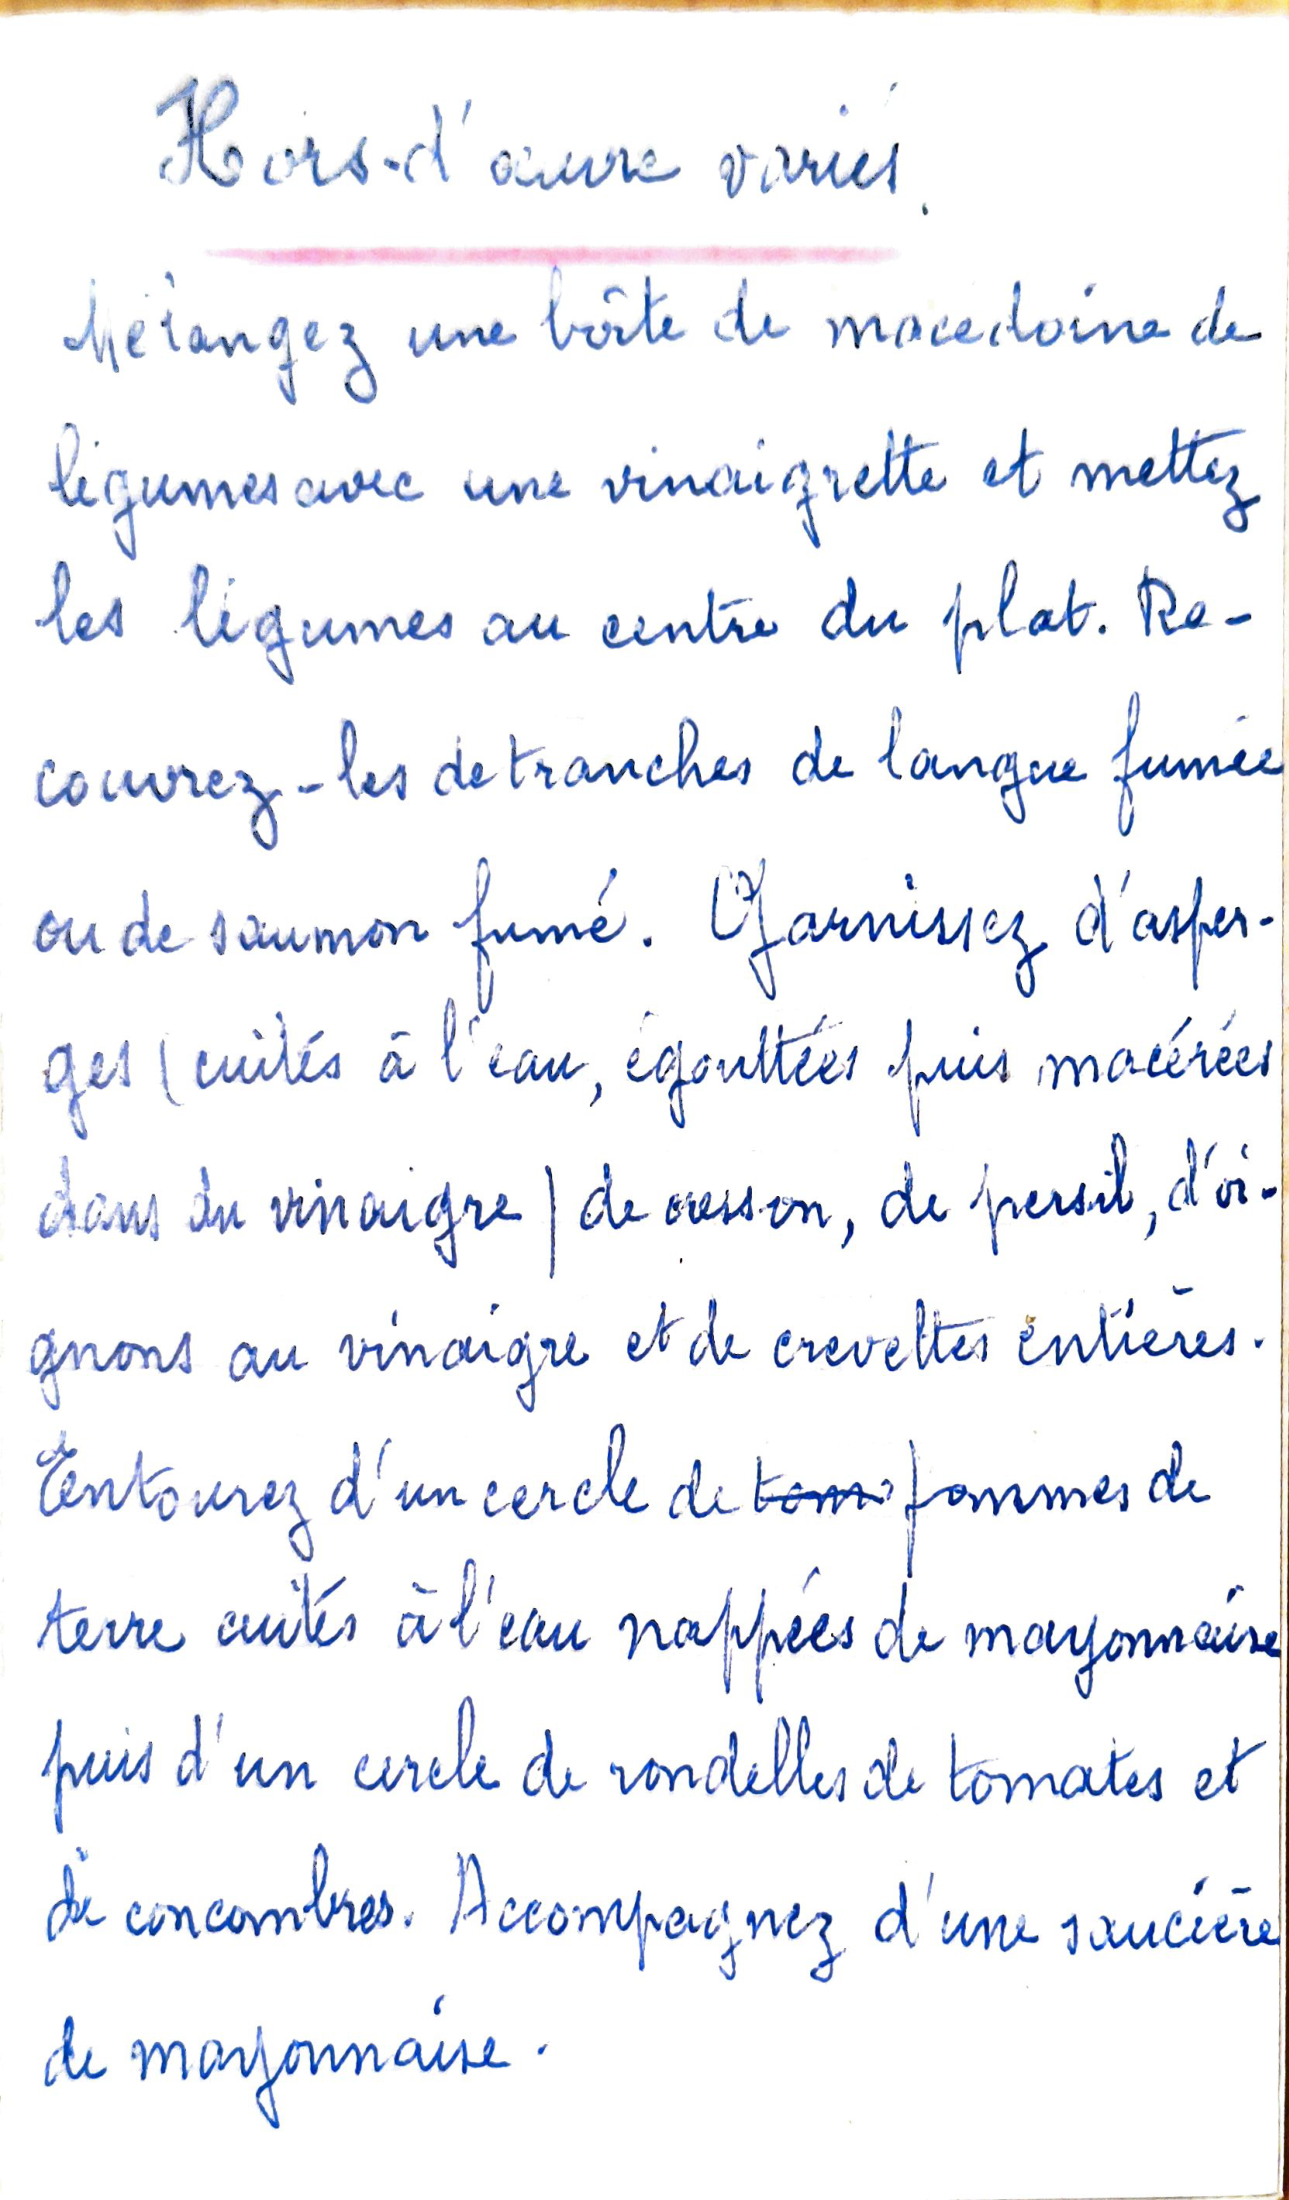 Hors-d'œuvre variés.
Mélangez une boîte de macedoine de
légumes avec une vinaigrette et mettez
les légumes au centre du plat. Re-
couvrez-les de tranches de langue fumée
ou de saumon fumé. Garnissez d'asper-
ges (cuités à l'eau, égouttées puis macérées
dans du vinaigre) de cresson, de persil, d'oi-
gnons au vinaigre et de crevettes entières.
Entourez d'un cercle de tom pommes de
terre cuités à l'eau nappées de mayonnaise
puis d'un cercle de rondelles de tomates et
de concombres. Accompagnez d'une saucière
de mayonnaise.